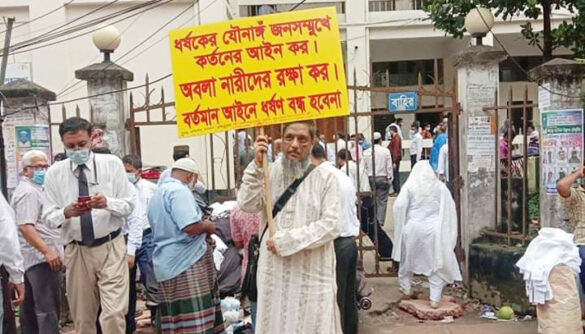 ধর্ষকের যৌনাঙ্গ জনসম্মুখে
কর্তনের আইন কর।
অবলা নারীদের রক্ষা কর।
বর্তমান আইনে ধর্ষণ বন্ধ হবেনা
বাহির